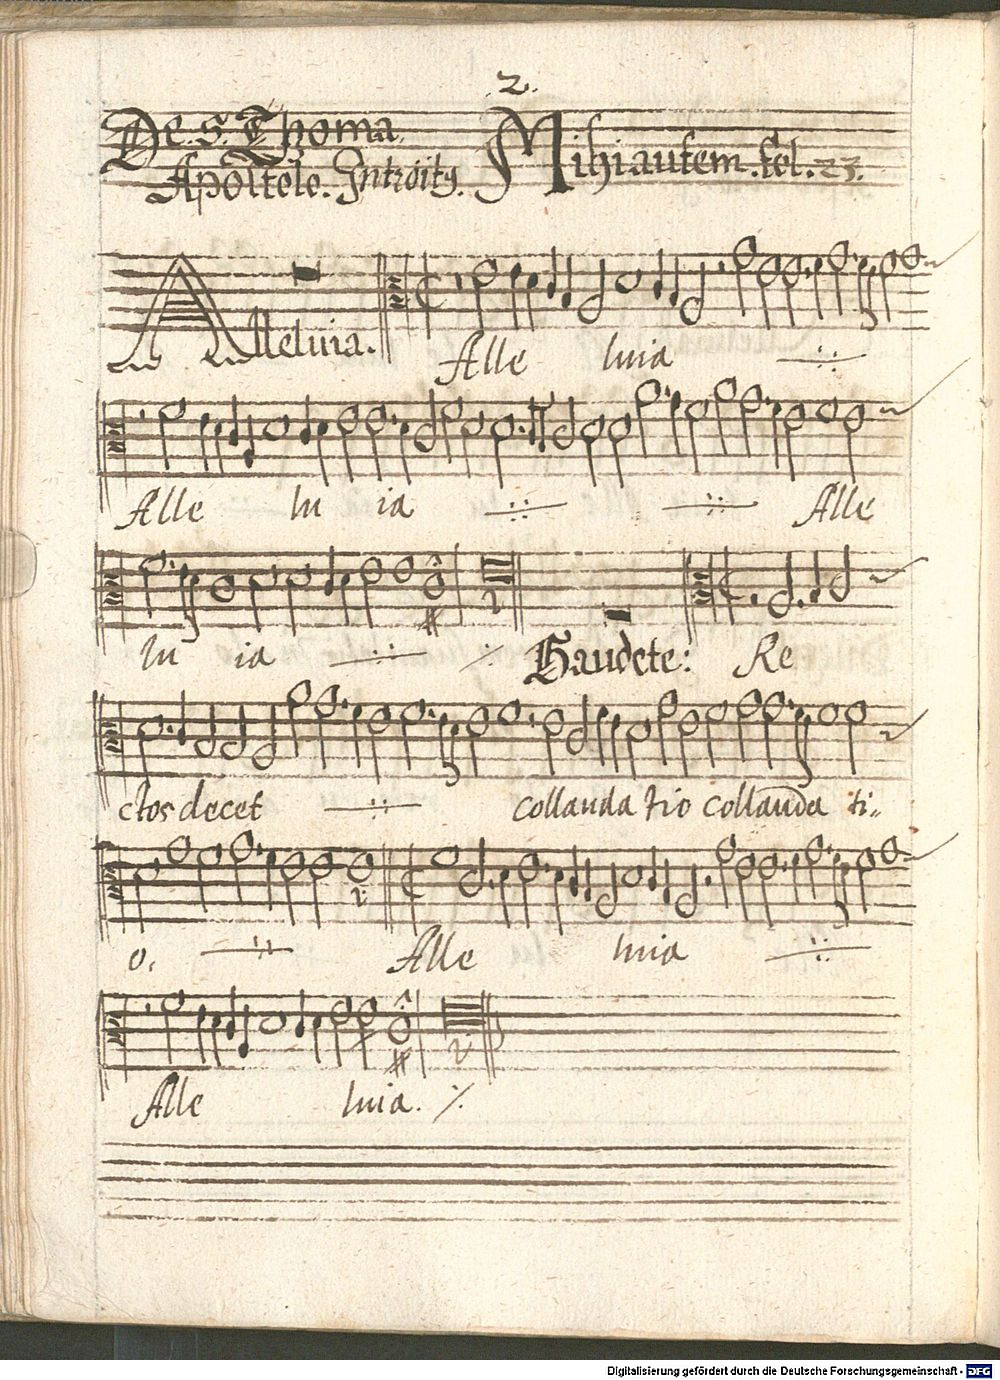 2.
De. S. Thoma Mihi autem. fol. 23.
Apostolo. Introitq.
Alleluia.
Alle luia
Alle lu ia Alle
lu ia Gaudete: Re
ctos decet collauda tio collauda ti„
o. Alle luia
Alle luia.
Digitalisierung gefördert durch die Deutsche Forschungsgemeinschaft - DFG